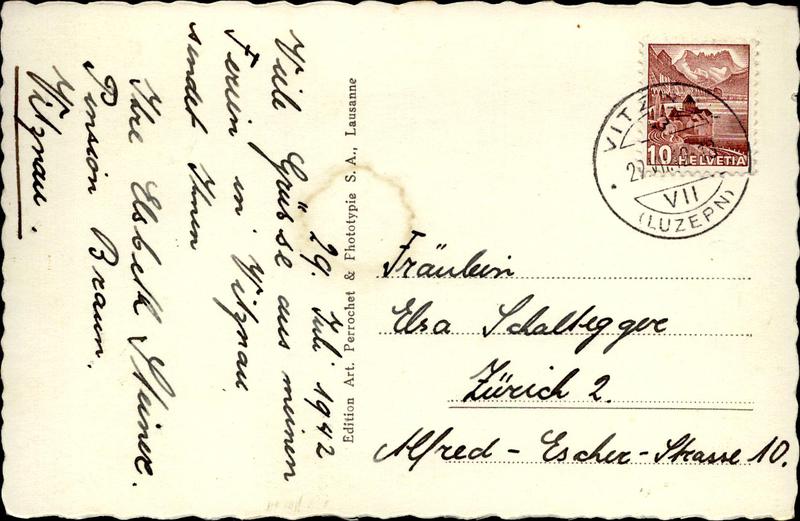 29. Juli 1942
Viele Grüsse aus meinen
Ferien in Vitznau
sendet Ihnen
Ihre Elsbeth Steiner.
Pension Braun.
Vitznau.
Edition Art. Perrochet & Phototypie S. A., Lausanne
10 HELVETIA
VITZ
VII
(LUZERN)
Fräulein
Elsa Schaltegger
Zürich 2.
Alfred-Escher-Strasse 10.